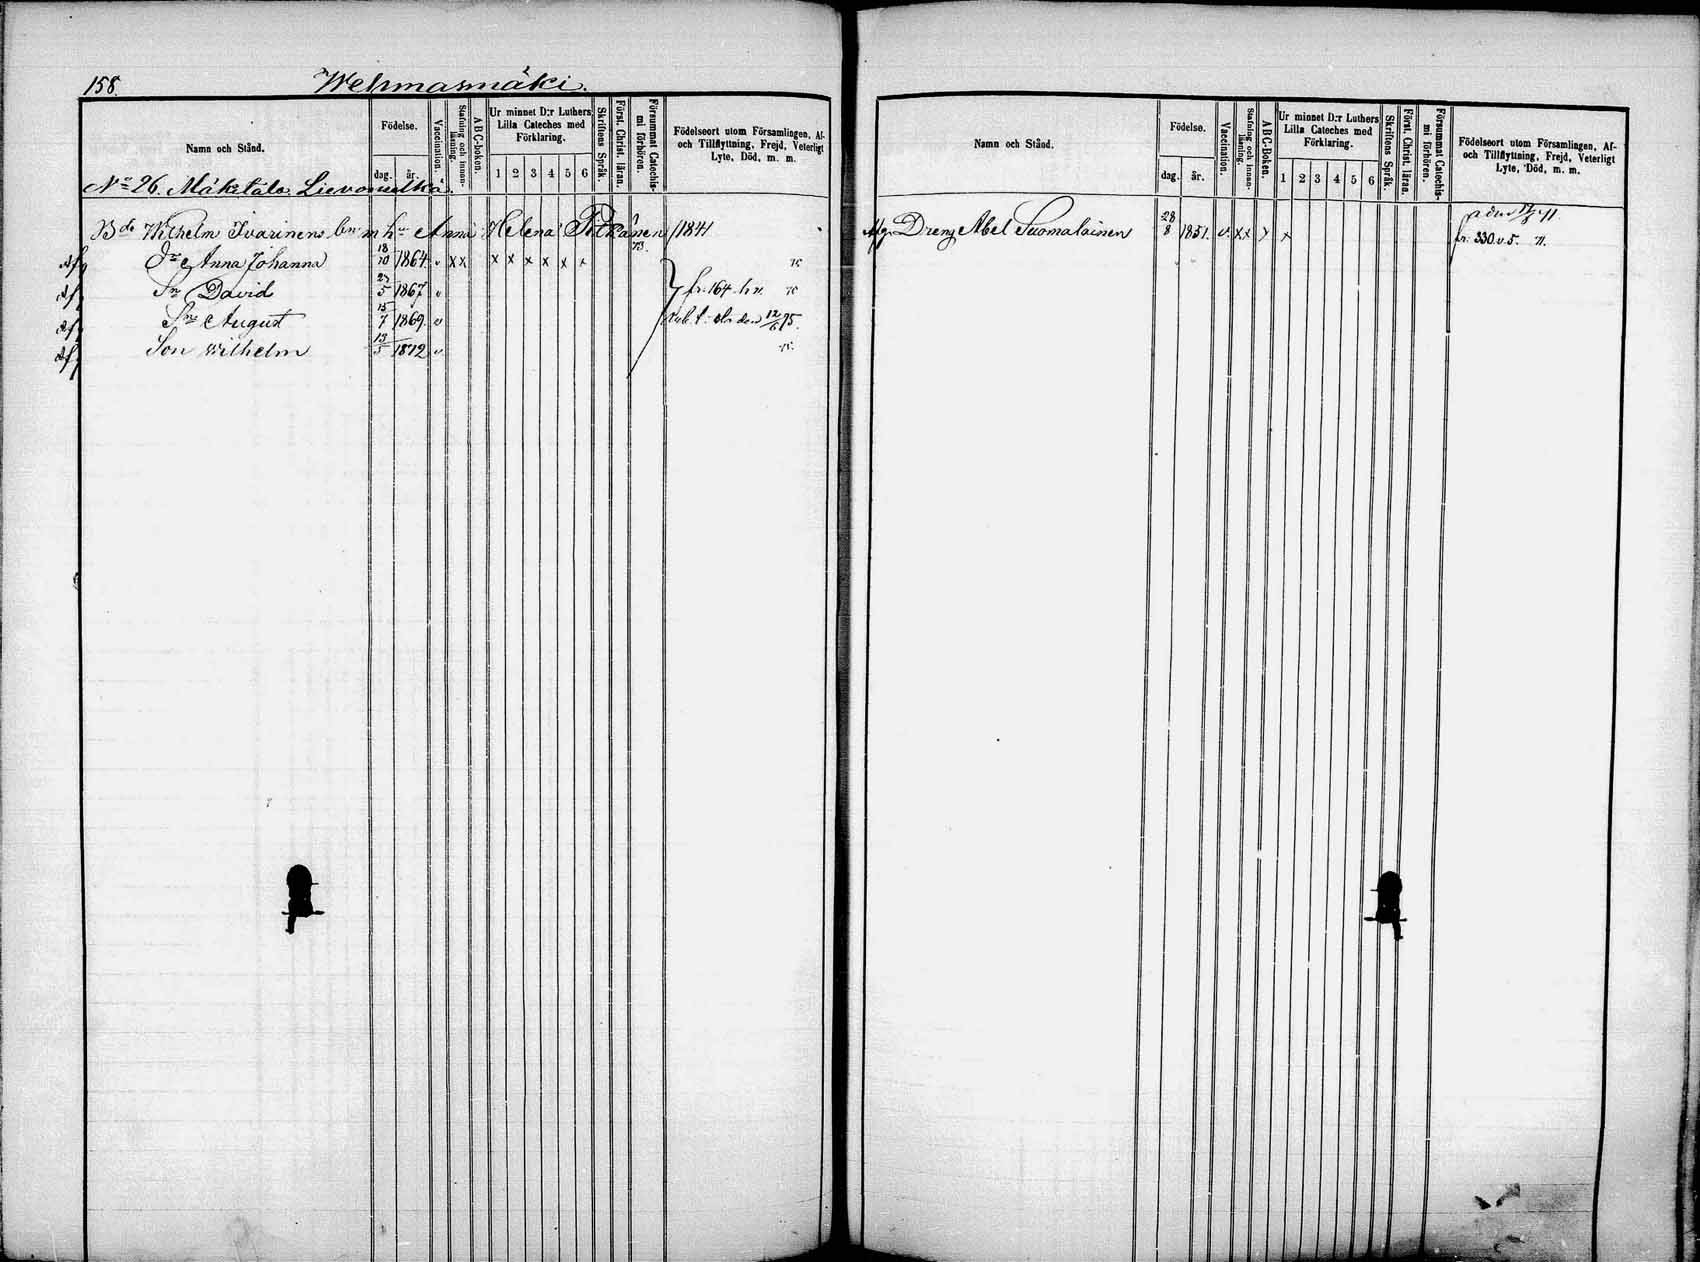 158. Wehmasmäki.
Namn och Stånd.
Födelse.
dag. år.
Vaccination.
Stafning och innanläsning.
ABC-boken.
Ur minnet D:r Luthers Lilla Cateches med Förklaring.
1 2 3 4 5 6
Skriftens Språk.
Först. Christ. läran.
Försummat Catechismi förhören.
Födelseort utom Församlingen, Af- och Tillflyttning, Frejd, Veterligt Lyte, Död, m. m.
No 26. Mäkitalo
Bde Wilhelm Ivarinens m hu Anna Helena Pitkänen /1841
Dr Anna Johanna 18/10 1864. v x x x x x x x x
Sn David 27/5 1867 v fr. 164 h v.
Sn August 15/7 1869. v den 12/6 75.
Son Wilhelm 13/5 1872 v
Namn och Stånd.
Födelse.
dag. år.
Vaccination.
Stafning och innanläsning.
ABC-Boken.
Ur minnet D:r Luthers Lilla Cateches med Förklaring.
1 2 3 4 5 6
Skriftens Språk.
Först. Christ. läran.
Försummat Catechismi förhören.
Födelseort utom Församlingen, Af- och Tillflyttning, Frejd, Veterligt Lyte, Död, m. m.
Dreng Abel Suomalainen 28/8 1851. v. x x x x
fr. 330. v. 5. 71.